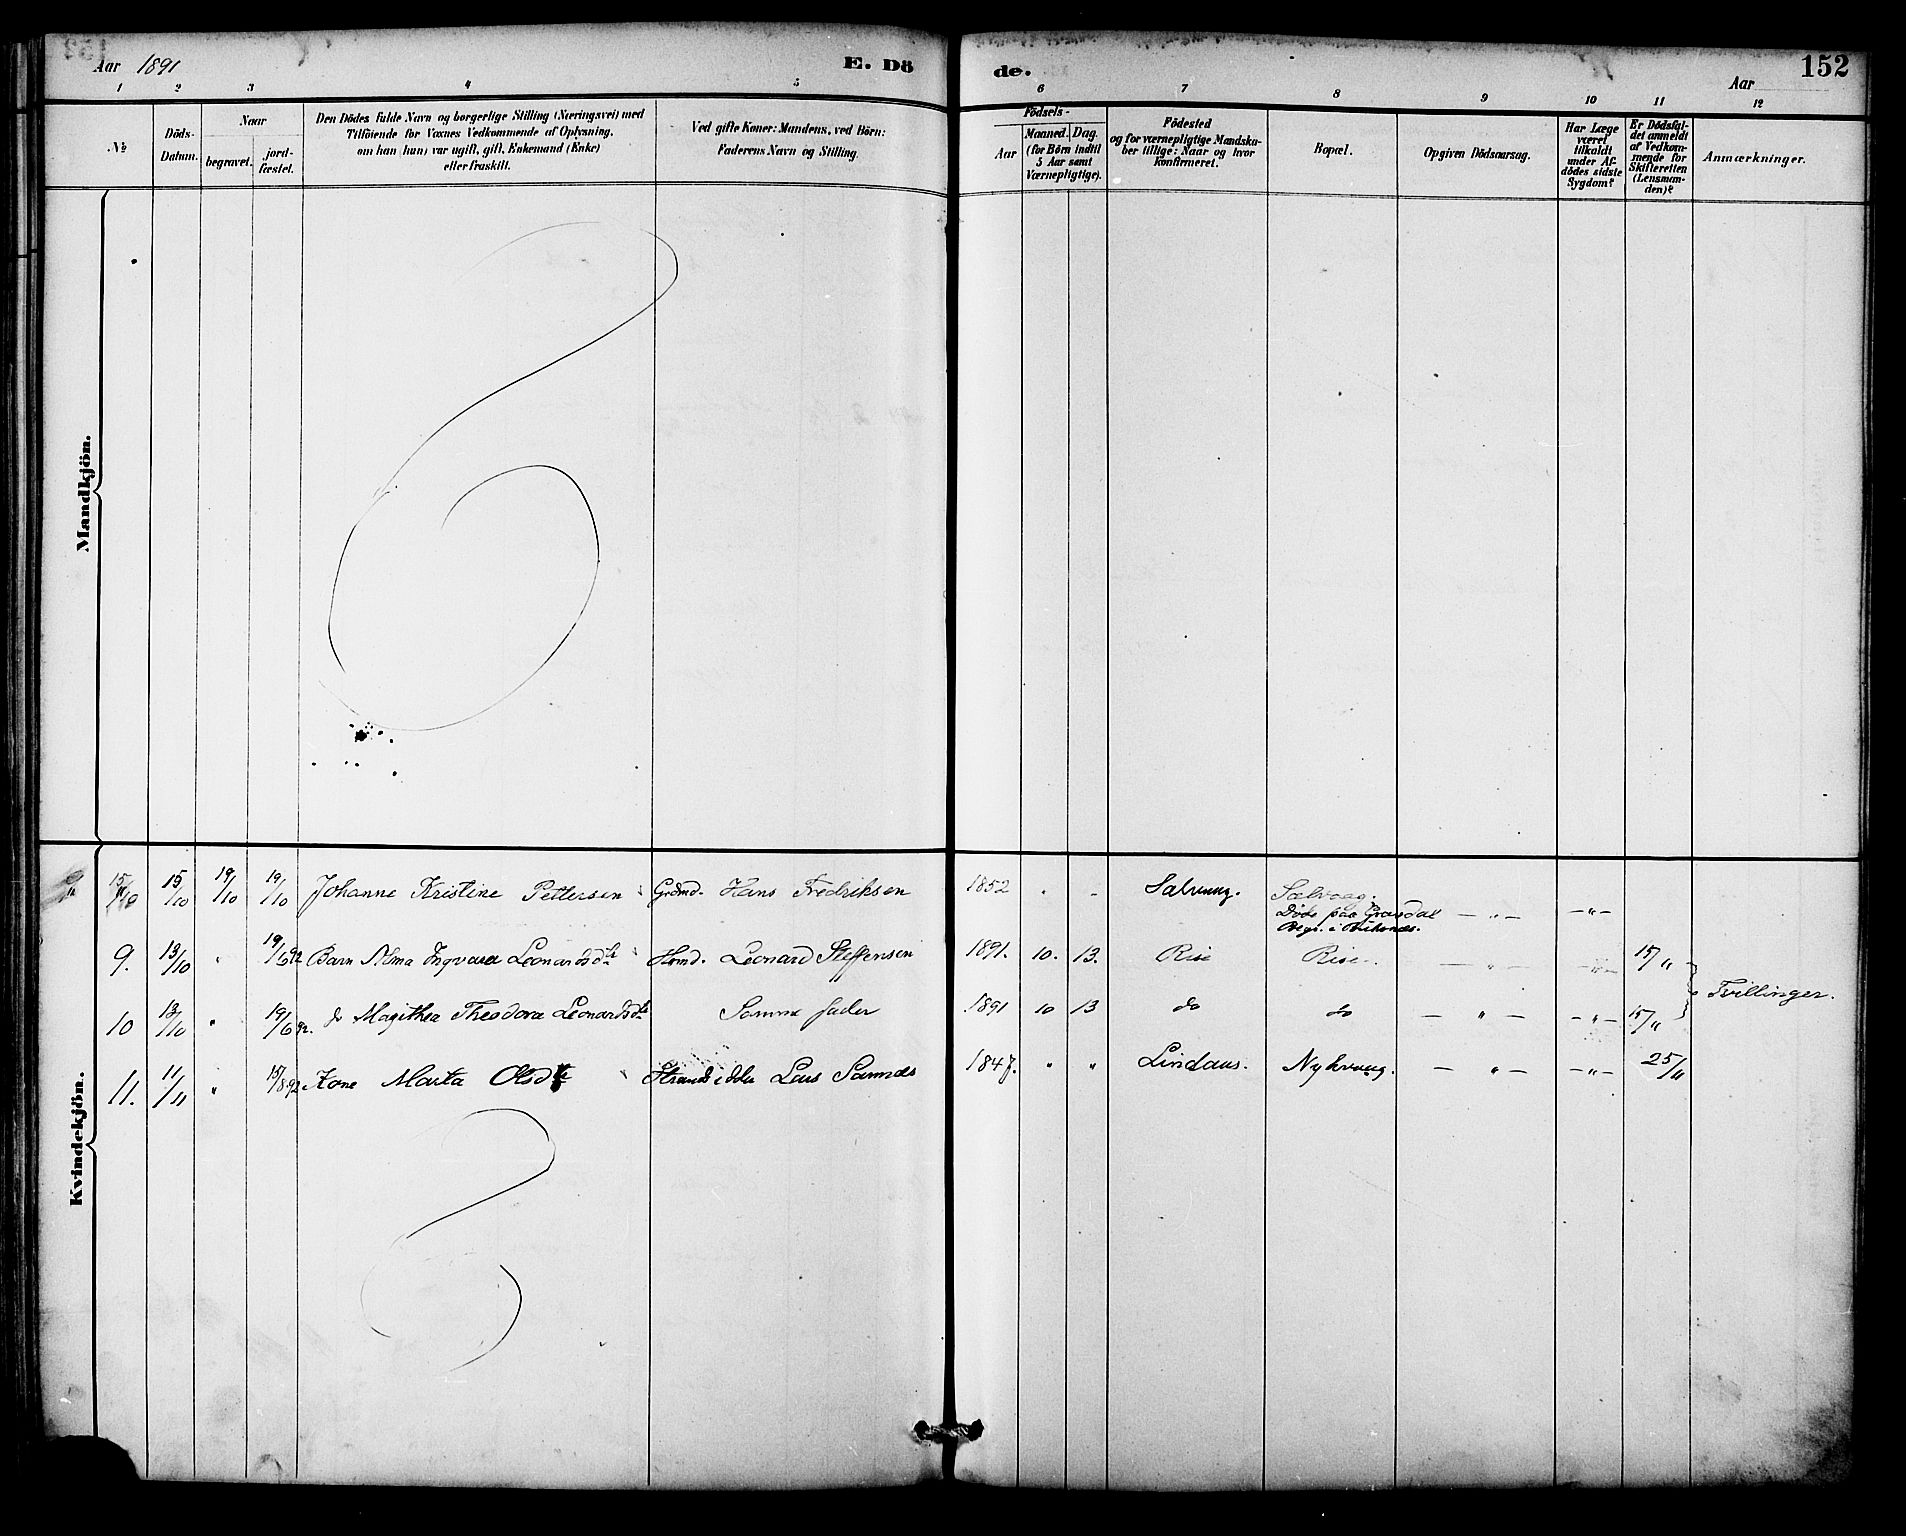 Aar 1891
E. Dö
de.
Aar
152
1 2 3 4 5 6 7 8 9 10 11 12
№
Döds-
Datum.
Naar
begravet.
jord-
fæstet.
Den Dödes fulde Navn og borgerlige Stilling (Næringsvei) med
Tilföiende for Voxnes Vedkommende af Oplysning,
om han (hun) var ugift, gift, Enkemand (Enke)
eller fraskilt.
Ved gifte Koner: Mandens, ved Börn:
Faderens Navn og Stilling.
Födsels-
Aar
Maaned. Dag.
(for Börn indtil
5 Aar samt
Værnepligtige).
Födested
og for værnepligtige Mandska-
ber tillige: Naar og hvor
konfirmeret.
Bopæl.
Opgiven Dödsaarsag.
Har Læge
været
tilkaldt
under Af-
dödes sidste
Sygdom?
Er Dödsfal-
det anmeldt
af Vedkom-
mende for
Skifteretten
(Lensman-
den)?
Anmærkninger.
Mandkjön.
Kvindekjön.
15/10 19/10 19/10 Johanne Kristine Pettersen Grdmd. Hans Fredriksen 1852 " - Salvaag. Sælvaag. — " — — " —
Døde paa
Begr. i
9. 13/10 " 19/6 92 Barn Alma Ingvara Leonardsdtr Hsmd. Leonard Steffensen 1891. 10. 13. Rise Rise. — " — — " — 15/11
10 13/10 " 19/6 92. do Magithea Theodora Leonardsdtr Samme fader 1891 10 13 do do — " — — " — 15/11 Tvillinger.
11. 11/11 " 15/8 92 Kone Marta Olsdtr Strandsidder Lars Sannes 1847. " " Lindaas. Nykvaag. — " — — " — 25/11